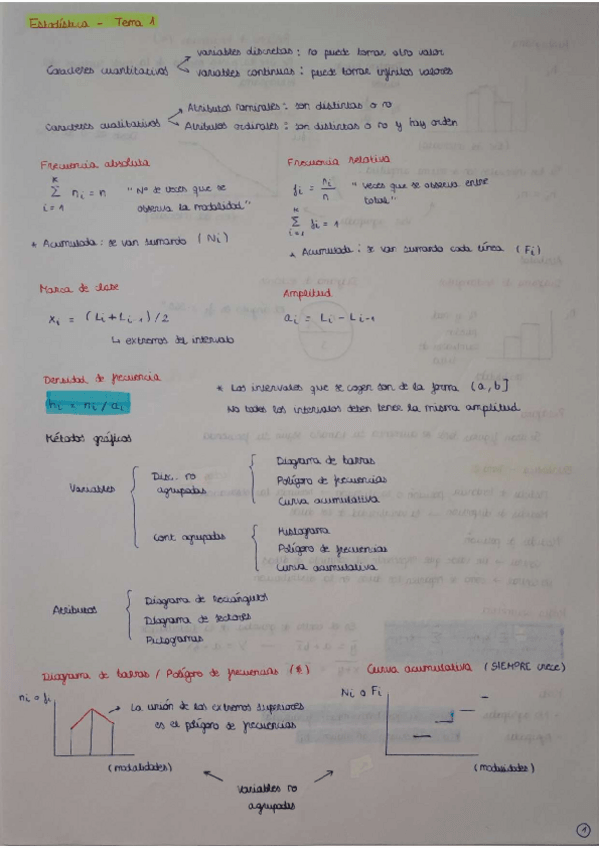 Estadística - Tema 1
Caracteres cuantitativos
variables discretas: no puede tomar otro valor
variables continuas: puede tomar infinitos valores
Caracteres cualitativos
Atributos nominales: son distintas o no
Atributos ordinales: son distintas o no y hay orden
Frecuencia absoluta
K
Σ ni = n
i = 1
"Nº de veces que se
observa la modalidad"
* Acumulada: se van sumando (Ni)
Frecuencia relativa
fi = ni / n
"veces que se observa entre
total"
K
Σ fi = 1
i=1
* Acumulada: se van sumando cada línea (Fi)
Marca de clase
xi = (Li + Li-1)/2
↳ extremos del intervalo
Amplitud
ai = Li - Li-1
Densidad de frecuencia
hi = ni / ai
* Los intervalos que se cogen son de la forma (a, b]
No todos los intervalos deben tener la misma amplitud
Métodos gráficos
Variables
Disc. no
agrupadas
Diagrama de barras
Polígono de frecuencias
Curva acumulativa
Cont. agrupadas
Histograma
Polígono de frecuencias
Curva acumulativa
Atributos
Diagrama de rectángulos
Diagrama de sectores
Pictogramas
Diagrama de barras / Polígono de frecuencias (*)
ni o fi
La unión de los extremos superiores
es el polígono de frecuencias
(modalidades)
Curva acumulativa (SIEMPRE crece)
Ni o Fi
(modalidades)
variables no
agrupadas
1